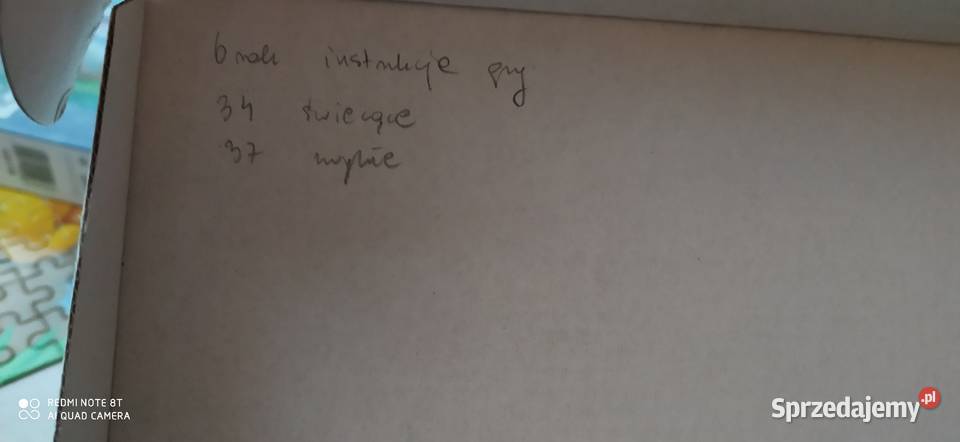 brak instrukcje gry
34 świecące
37 zwykłe
REDMI NOTE 8T
AI QUAD CAMERA
Sprzedajemy.pl